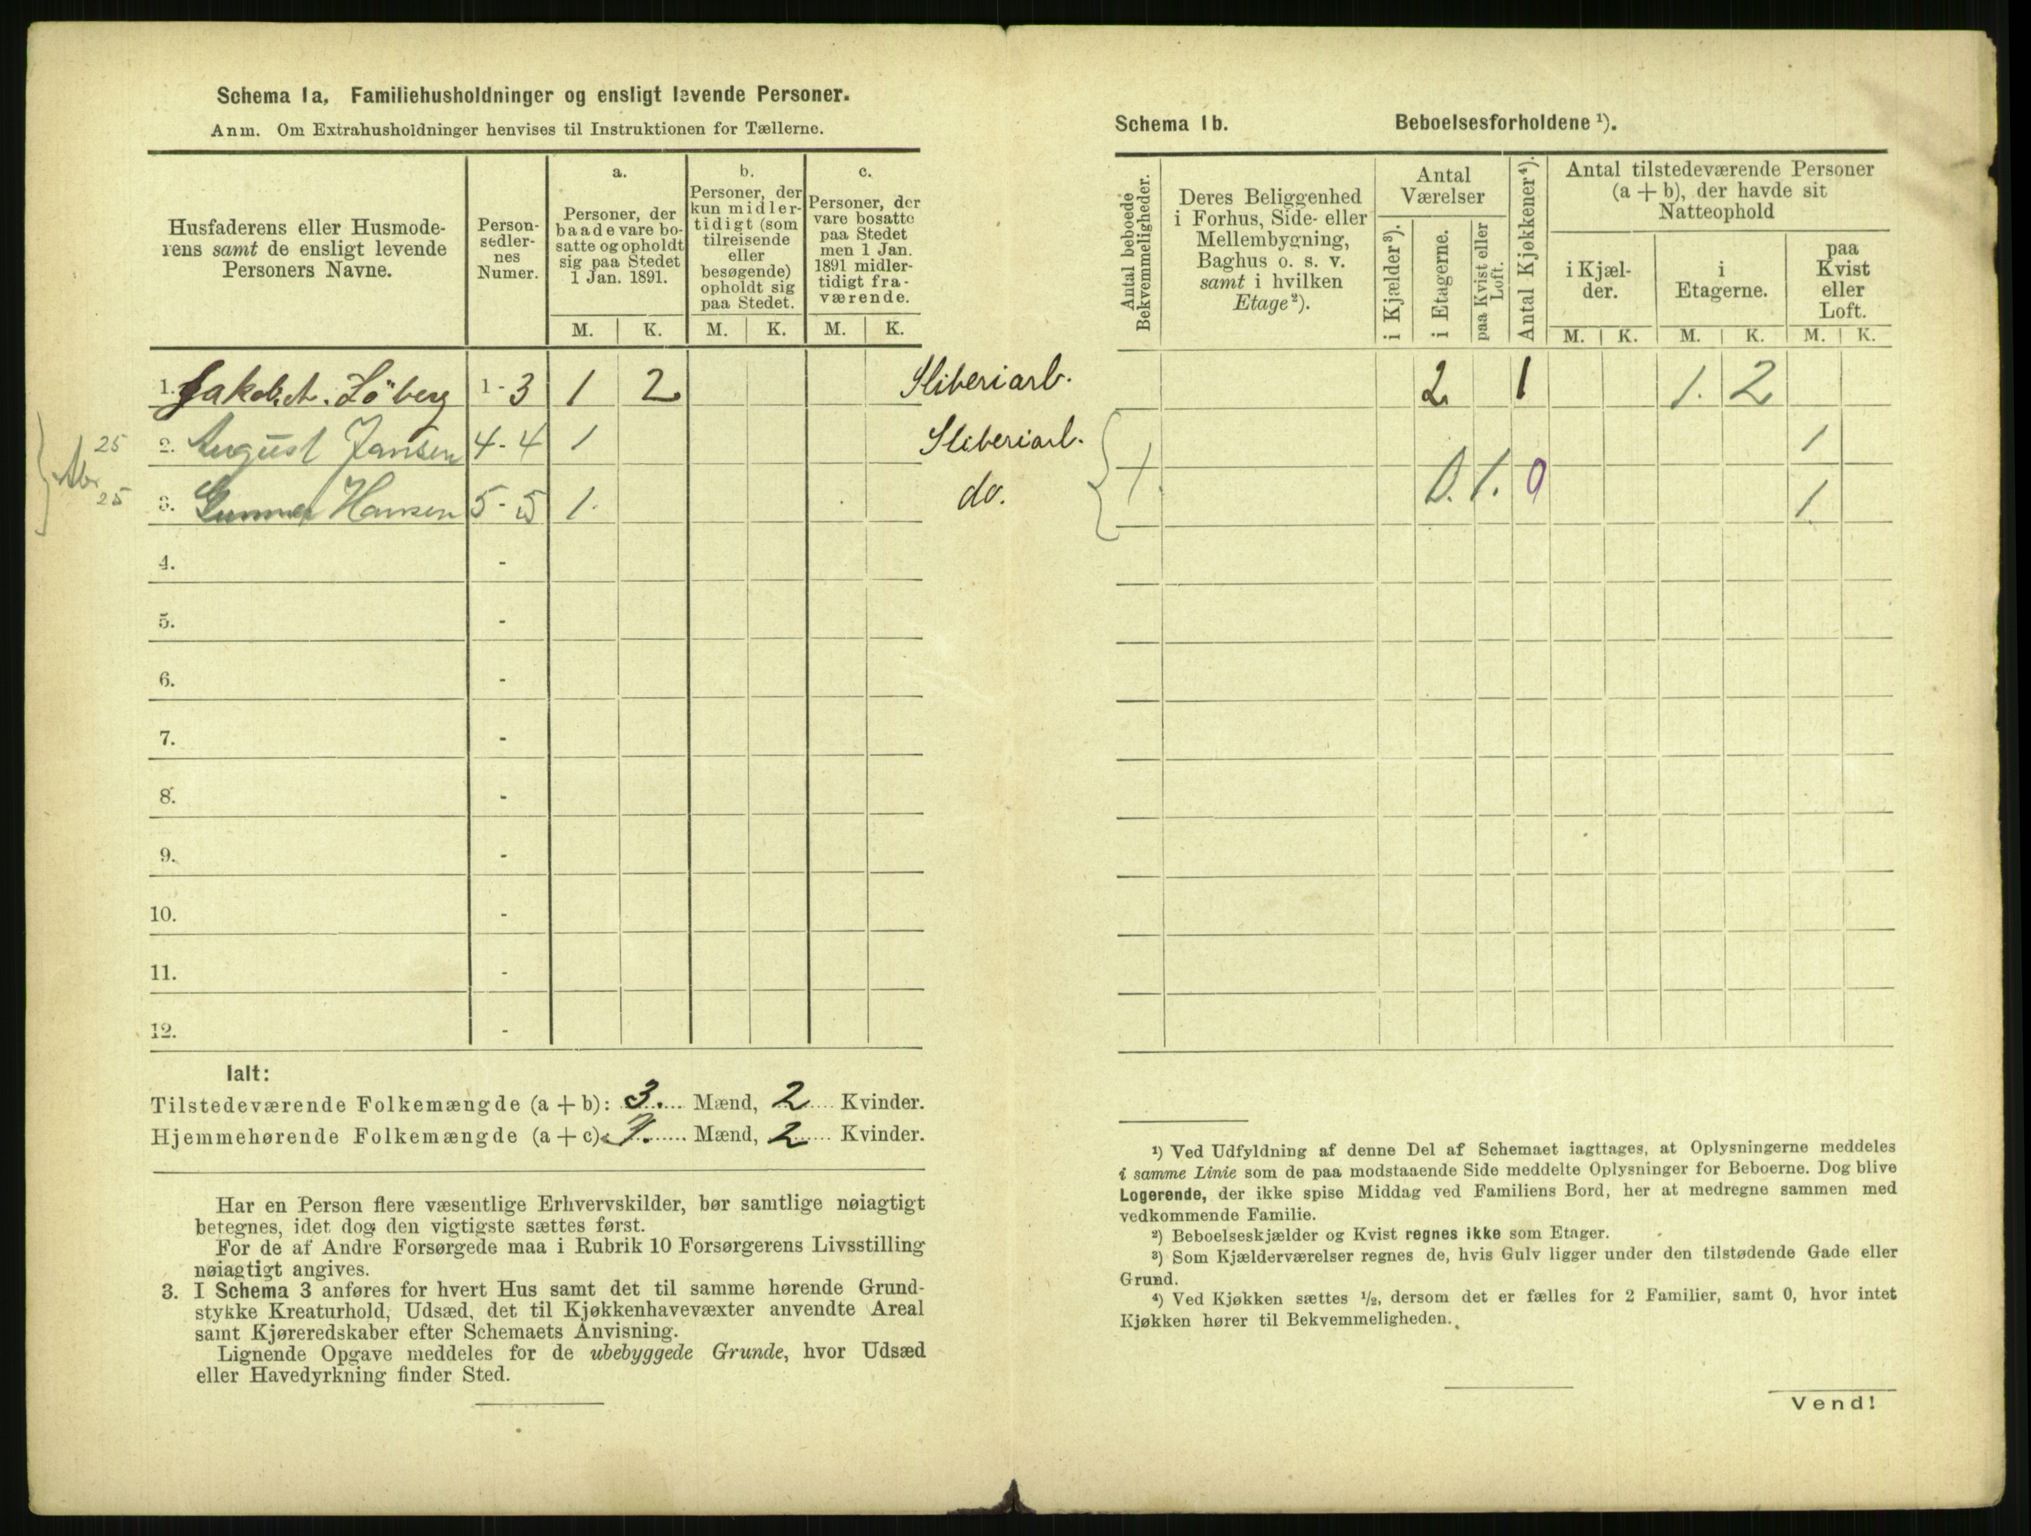 Schema 1a, Familiehusholdninger og ensligt levende Personer.
Anm. Om Extrahusholdninger henvises til Instruktionen for Tællerne.
Husfaderens eller Husmode-
rens samt de ensligt levende
Personers Navne.
Person-
sedler-
nes
Numer.
a.
Personer, der
baade vare bo-
satte og opholdt
sig paa Stedet
1 Jan. 1891.
b.
Personer, der
kun midler-
tidigt (som
tilreisende
eller
besøgende)
opholdt sig
paa Stedet.
c.
Personer, der
vare bosatte
paa Stedet
men 1 Jan.
1891 midler-
tidigt fra-
værende.
M. K. M. K. M. K.
1. Löberg 1-3 1 2 Sliberiarb.
25 2. August Jansen 4-4 1 Sliberiarb.
25 3. Gunnar Hansen 5-5 1. do.
4. -
5. -
6. -
7. -
8. -
9. -
10. -
11. -
12. -
Ialt:
Tilstedeværende Folkemængde (a + b): 3. Mænd, 2 Kvinder.
Hjemmehørende Folkemængde (a + c): Mænd, 2 Kvinder.
Har en Person flere væsentlige Erhvervskilder, bør samtlige nøiagtigt
betegnes, idet dog den vigtigste sættes først.
For de af Andre Forsørgede maa i Rubrik 10 Forsørgerens Livsstilling
nøiagtigt angives.
3. I Schema 3 anføres for hvert Hus samt det til samme hørende Grund-
stykke Kreaturhold, Udsæd, det til Kjøkkenhavevæxter anvendte Areal
samt Kjøreredskaber efter Schemaets Anvisning.
Lignende Opgave meddeles for de ubebyggede Grunde, hvor Udsæd
eller Havedyrkning finder Sted.
Schema 1b. Beboelsesforholdene ¹).
Antal beboede
Bekvemmeligheder.
Deres Beliggenhed
i Forhus, Side- eller
Mellembygning,
Baghus o. s. v.
samt i hvilken
Etage²).
Antal
Værelser
i Kjælder³).
i Etagerne.
paa Kvist eller
Loft.
Antal Kjøkkener⁴).
Antal tilstedeværende Personer
(a + b), der havde sit
Natteophold
i Kjæl-
der.
i
Etagerne.
paa
Kvist
eller
Loft.
M. K. M. K. M. K.
2 1 1. 2
1
1. 0. 1. 0 1
¹) Ved Udfyldning af denne Del af Schemaet iagttages, at Oplysningerne meddeles
i samme Linie som de paa modstaaende Side meddelte Oplysninger for Beboerne. Dog blive
Logerende, der ikke spise Middag ved Familiens Bord, her at medregne sammen med
vedkommende Familie.
²) Beboelseskjælder og Kvist regnes ikke som Etager.
³) Som Kjælderværelser regnes de, hvis Gulv ligger under den tilstødende Gade eller
Grund.
⁴) Ved Kjøkken sættes ½, dersom det er fælles for 2 Familier, samt 0, hvor intet
Kjøkken hører til Bekvemmeligheden.
Vend!